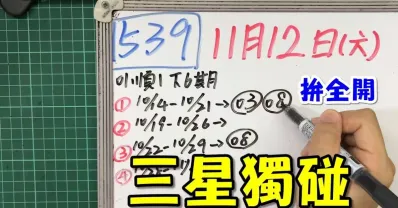 539 11月12日(六)
拚全開
① 10/14-10/21→ 03 08
② 10/19-10/26→
③ 10/22-10/29→ 08
④
三星獨碰